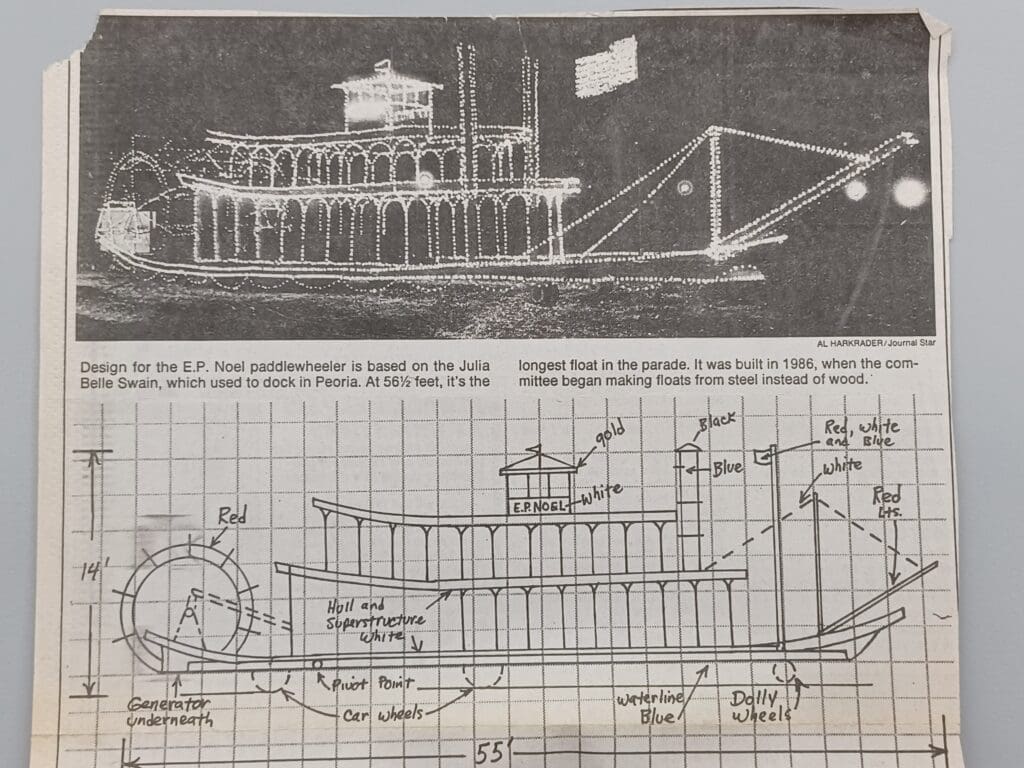 AL HARKRADER/Journal Star
Design for the E.P. Noel paddlewheeler is based on the Julia
Belle Swain, which used to dock in Peoria. At 56½ feet, it's the
longest float in the parade. It was built in 1986, when the com-
mittee began making floats from steel instead of wood.
gold
Black
Red, white
and Blue
Blue
white
E.P. NOEL
white
Red
Lts.
Red
14'
Hull and
Superstructure
white
Generator
underneath
Pivot Point
Car wheels
waterline
Blue
Dolly
wheels
55'